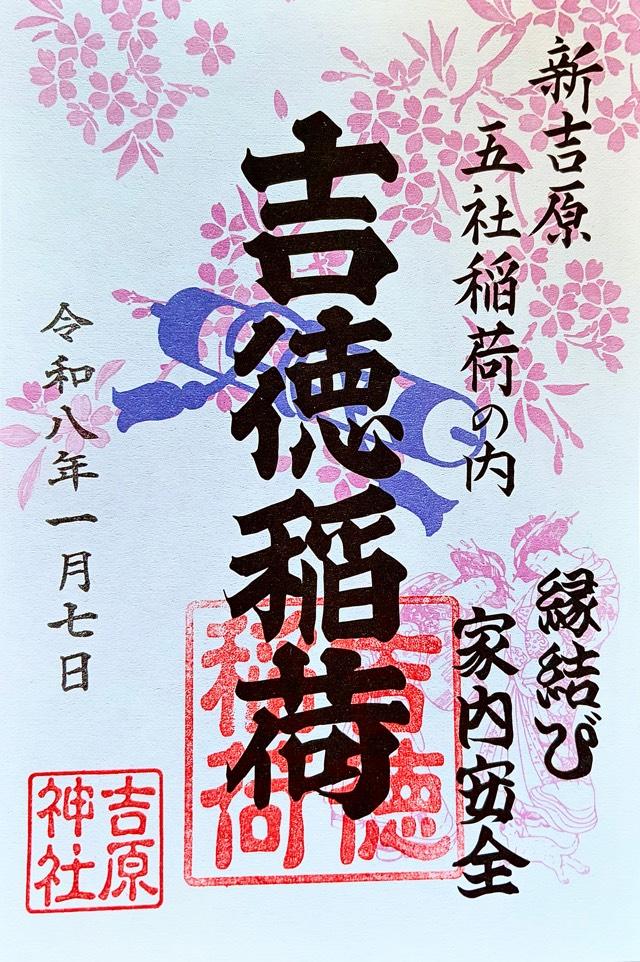 新吉原
五社稲荷の内
縁結び
家内安全
吉徳稲荷
吉徳
稲荷
令和八年一月七日
吉原
神社